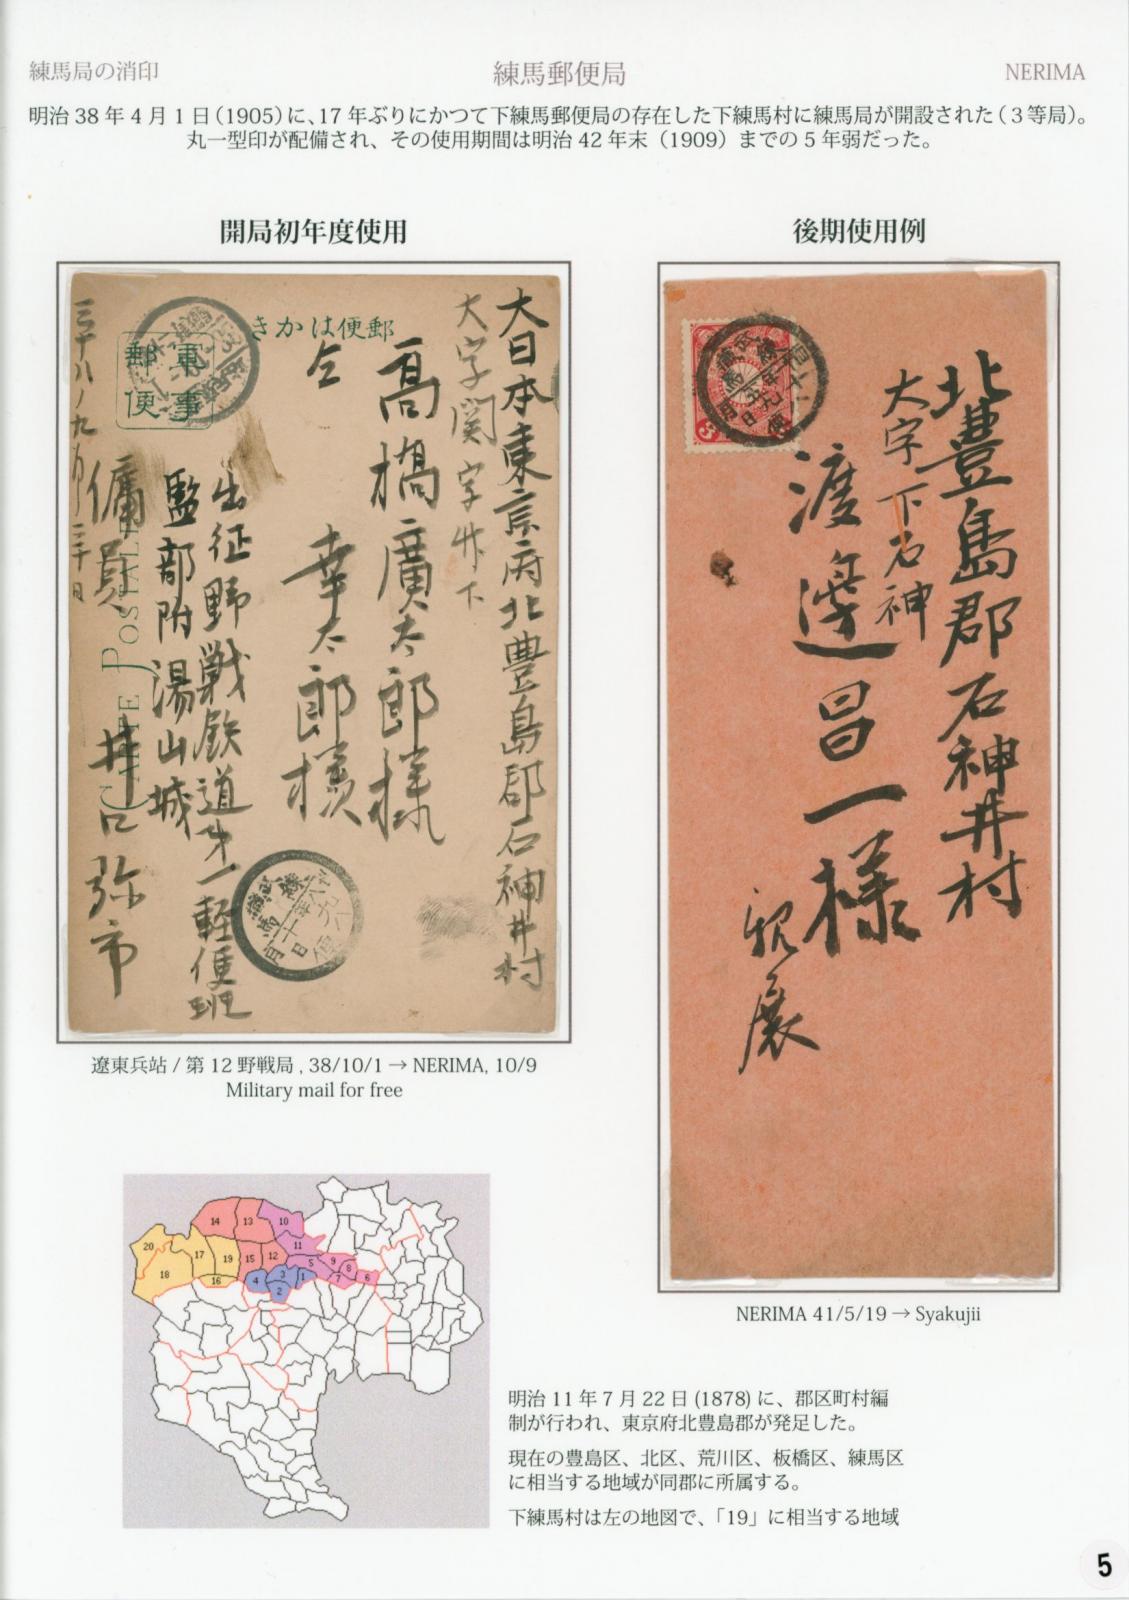 練馬局の消印
練馬郵便局
NERIMA
明治 38 年 4 月 1 日（1905）に、17 年ぶりにかつて下練馬郵便局の存在した下練馬村に練馬局が開設された（３等局）。
丸一型印が配備され、その使用期間は明治 42 年末（1909）までの 5 年弱だった。
開局初年度使用
大日本東京府北豊島郡石神井村
大字関字竹下
高橋廣太郎様
仝 幸太郎様
きかは便郵
軍事
郵便
CARTE POSTALE
出征野戦鉄道第一軽便班
監部附湯山城
傭員 井口弥市
遼東兵站 / 第 12 野戦局 , 38/10/1 → NERIMA, 10/9
Military mail for free
後期使用例
北豊島郡石神井村
大字下石神
渡邊昌一様
親展
NERIMA 41/5/19 → Syakujii
20
18
17
19
16
14
13
15
12
10
11
5
9
8
7
6
4
3
1
2
明治 11 年 7 月 22 日 (1878) に、郡区町村編
制が行われ、東京府北豊島郡が発足した。
現在の豊島区、北区、荒川区、板橋区、練馬区
に相当する地域が同郡に所属する。
下練馬村は左の地図で、「19」に相当する地域
5